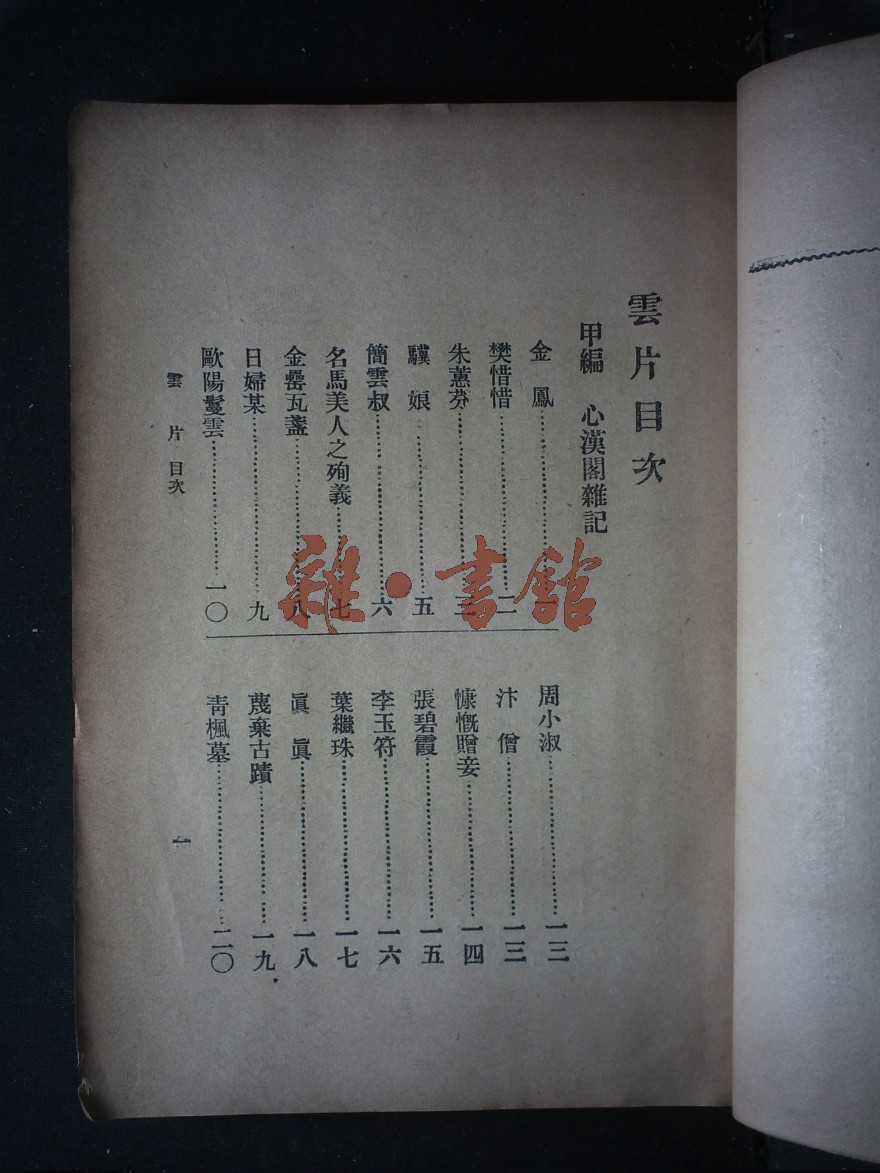 雲片目次
甲編　心漢閣雜記
金鳳……一
樊惜惜……二
朱蕙芬……三
驥娘……五
簡雲叔……六
名馬美人之殉義……七
金罍瓦盞……八
日婦某……九
歐陽鬘雲……一〇
周小淑……一三
汴僧……一三
慷慨贈妾……一四
張碧霞……一五
李玉符……一六
葉繼珠……一七
眞眞……一八
蔑棄古蹟……一九
靑楓墓……二〇
雲片目次
一
雜·書館